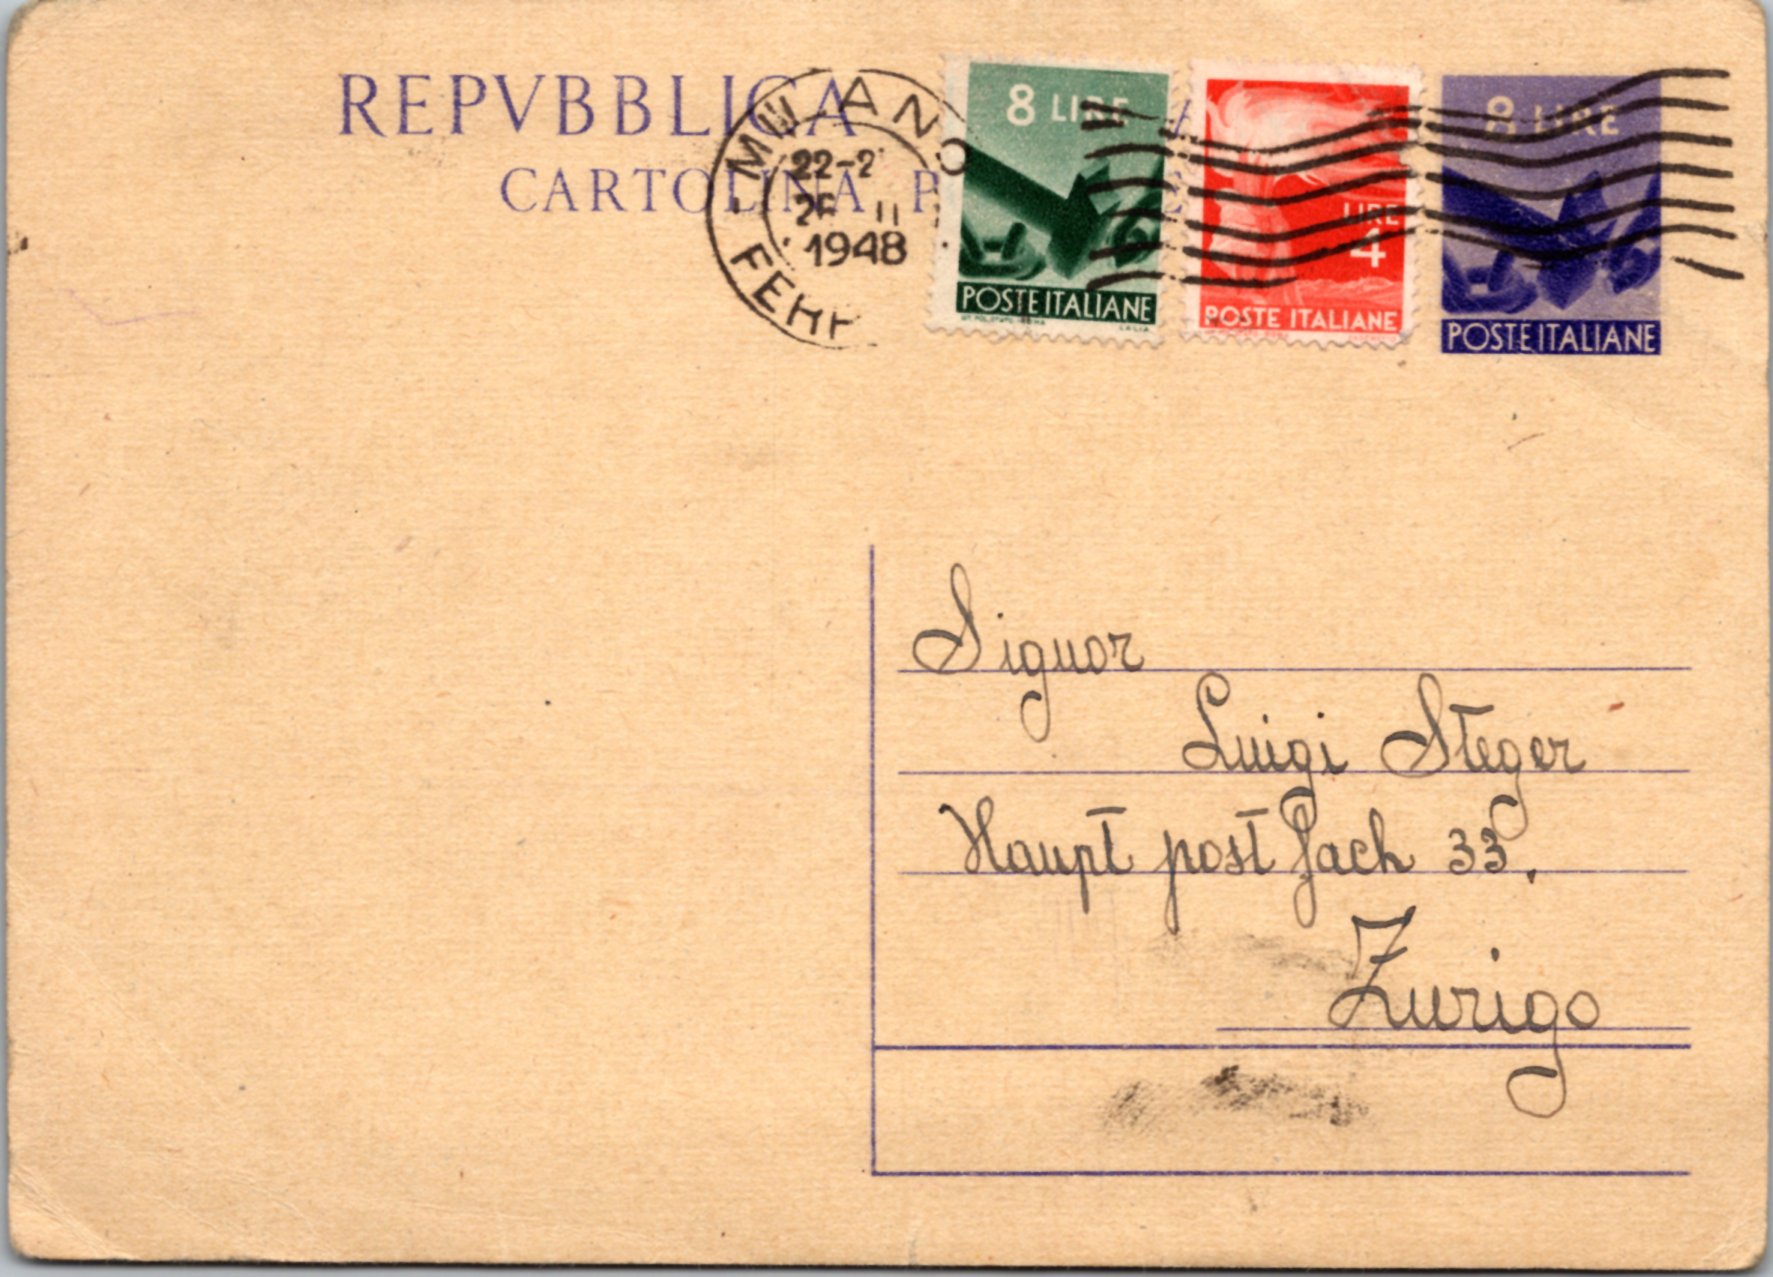 REPVBBLICA
CARTOLINA P
MILANO
22-2
II
1948
FERR
8 LIRE
POSTE ITALIANE
LIRE
4
POSTE ITALIANE
8 LIRE
POSTE ITALIANE
Signor
Luigi Steger
Haupt post fach 33.
Zurigo